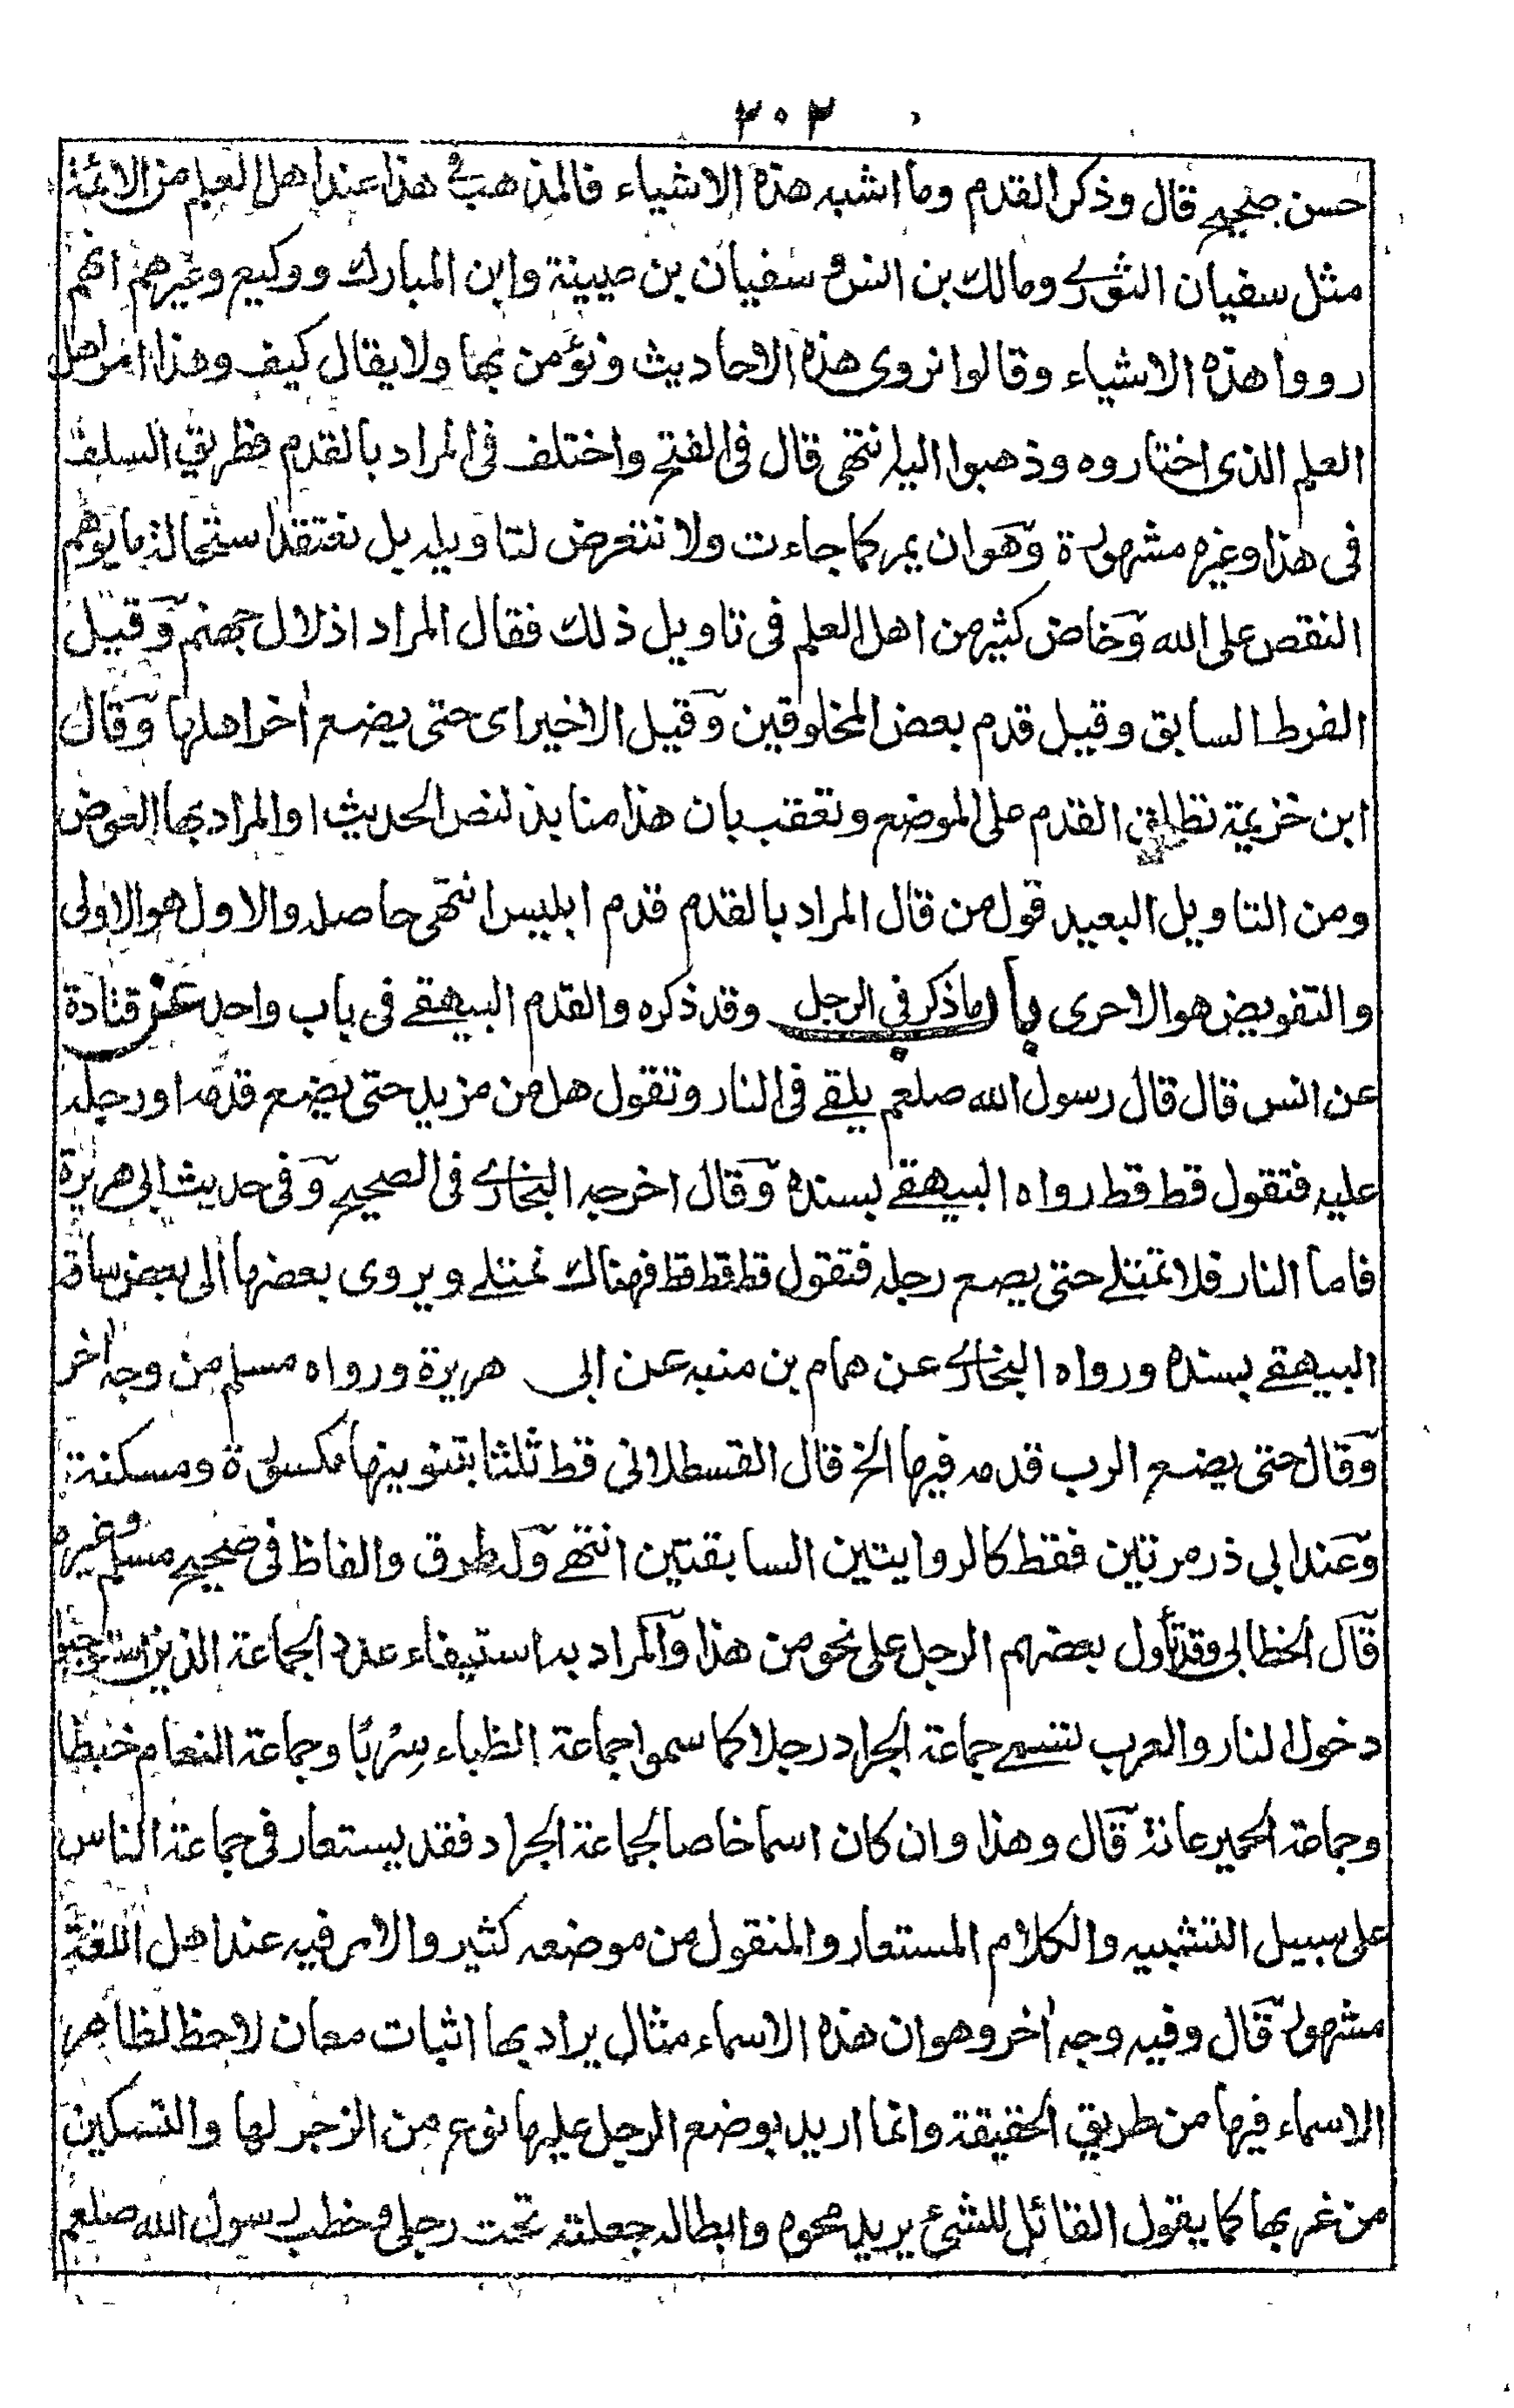 ٢٠٢
حسن صحيح قال وذكر القدم وما اشبه هذه الاشياء فالمذهب فى هذا عند اهل العلم من الائمة
مثل سفيان الثورى ومالك بن انس و سفيان بن عيينة وابن المبارك ووكيع وغيرهم انهم
رووا هذه الاشياء وقالوا نروى هذه الاحاديث ونؤمن بها ولا يقال كيف وهذا امر اهل
العلم الذى اختاروه وذهبوا اليه انتهى قال فى الفتح واختلف فى المراد بالقدم فطريق السلف
فى هذا وغيره مشهورة وهو ان يمر كما جاءت ولا نتعرض لتاويله بل نعتقد استحالة ما يوهم
النقص على الله وخاض كثير من اهل العلم فى تاويل ذلك فقال المراد اذلال جهنم وقيل
الفرط السابق وقيل قدم بعض المخلوقين وقيل الاخير اى حتى يضع اٰخر اهلها وقال
ابن خزيمة تطلق القدم على الموضع وتعقب بان هذا منابذ لنص الحديث او المراد بها العوض
ومن التاويل البعيد قول من قال المراد بالقدم قدم ابليس انتهى حاصله والاول هو الاولى
والتفويض هو الاحرى باب ما ذكر فى الرجل وقد ذكره والقدم البيهقے فى باب واحد عن قتادة
عن انس قال قال رسول الله صلعم يلقے فى النار وتقول هل من مزيد حتى يضع قدمه او رجله
عليه فتقول قط قط رواه البيهقے بسنده وقال اخرجه البخارى فى الصحيح وفى حديث ابى هريرة
فاما النار فلا تمتلے حتى يصع رجله فتقول قط قط قط فهناك تمتلے ويروى بعضها الى بعض ساقه
البيهقے بسنده ورواه البخارى عن همام بن منبه عن ابى هريرة ورواه مسلم من وجه اٰخر
وقال حتى يضع الرب قدمه فيها الخ قال القسطلانى قط ثلثا بتنوينها مكسورة ومسكنة
وعند ابى ذر مرتين فقط كالروايتين السابقتين انتهے وله طرق والفاظ فى صحيح مسلم وغيره
قال الخطابى وقد تأول بعضهم الرجل على نحو من هذا والمراد به استيفاء عدد الجماعة الذين استوجبوا
دخول النار والعرب تسمے جماعة الجراد رجلا كما سموا جماعة الظباء سِرْبًا وجماعة النعام خيطا
وجماعة الحمير عانة قال وهذا وان كان اسما خاصا لجماعة الجراد فقد يستعار فى جماعة الناس
على سبيل التشبيه والكلام المستعار والمنقول من موضعه كثير والامر فيه عند اهل اللغة
مشهور قال وفيه وجه اٰخر وهو ان هذه الاسماء مثال يراد بها اثبات معان لاحظ لظاهر
الاسماء فيها من طريق الحقيقة وانما اريد بوضع الرجل عليها نوع من الزجر لها والتسكين
من غربها كما يقول القائل للشئ يريد محوه وابطاله جعلته تحت رجلى وخطب رسول الله صلعم